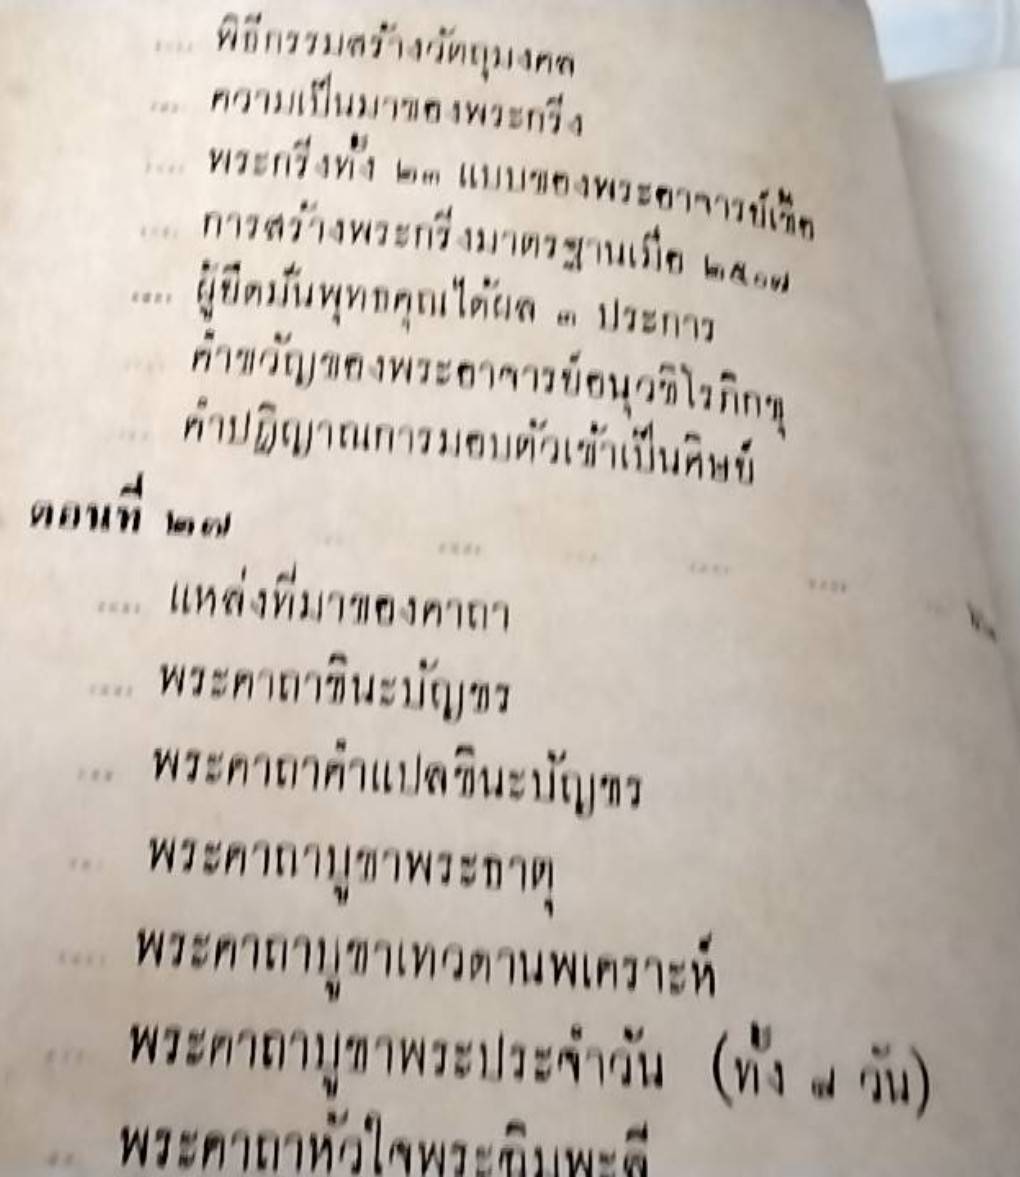 .... พิธีกรรมสร้างวัตถุมงคล
.... ความเป็นมาของพระกริ่ง
.... พระกริ่งทั้ง ๒๓ แบบของพระอาจารย์เชื้อ
.... การสร้างพระกริ่งมาตรฐานเมื่อ ๒๕๑๗
.... ผู้ยึดมั่นพุทธคุณได้ผล ๓ ประการ
.... คำขวัญของพระอาจารย์อนุวชิโรภิกขุ
.... คำปฏิญาณการมอบตัวเข้าเป็นศิษย์
ตอนที่ ๒๗ .... .... .... .... ....
.... แหล่งที่มาของคาถา
.... พระคาถาชินะบัญชร
.... พระคาถาคำแปลชินะบัญชร
.... พระคาถาบูชาพระธาตุ
.... พระคาถาบูชาเทวดานพเคราะห์
.... พระคาถาบูชาพระประจำวัน (ทั้ง ๗ วัน)
.... พระคาถาหัวใจพระฉิมพะลี